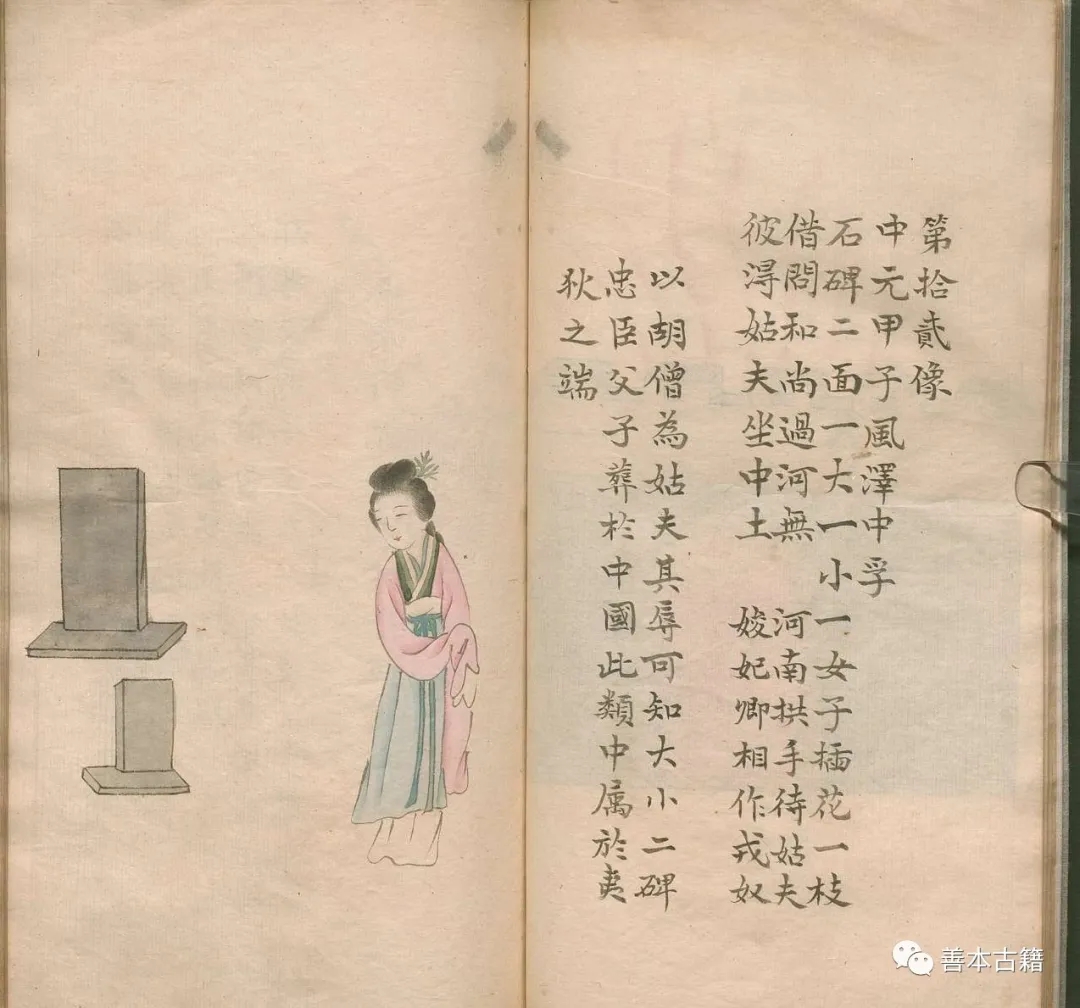 第拾貳像
中元甲子風澤中孚
石碑二面一大一小一女子插花一枝
借問和尚過河無河南拱手待姑夫
彼淂姑夫坐中土妓妃卿相作戎奴
以胡僧為姑夫其辱可知大小二碑
忠臣父子葬於中國此類中属於夷
狄之端
善本古籍